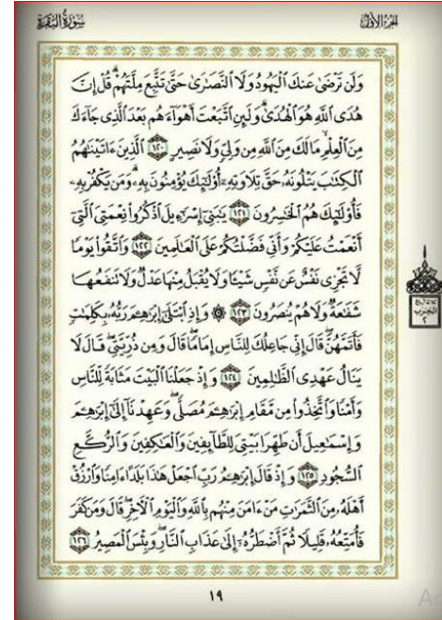 سُورَةُ البَقَرَةِ
الجزء الأول
وَلَن تَرْضَىٰ عَنكَ الْيَهُودُ وَلَا النَّصَٰرَىٰ حَتَّىٰ تَتَّبِعَ مِلَّتَهُمْ ۗ قُلْ إِنَّ
هُدَى اللَّهِ هُوَ الْهُدَىٰ ۗ وَلَئِنِ اتَّبَعْتَ أَهْوَاءَهُم بَعْدَ الَّذِي جَاءَكَ
مِنَ الْعِلْمِ ۙ مَا لَكَ مِنَ اللَّهِ مِن وَلِيٍّ وَلَا نَصِيرٍ ١٢٠ الَّذِينَ ءَاتَيْنَٰهُمُ
الْكِتَٰبَ يَتْلُونَهُۥ حَقَّ تِلَاوَتِهِۦٓ أُو۟لَٰٓئِكَ يُؤْمِنُونَ بِهِۦ ۗ وَمَن يَكْفُرْ بِهِۦ
فَأُو۟لَٰٓئِكَ هُمُ الْخَٰسِرُونَ ١٢١ يَٰبَنِىٓ إِسْرَٰٓءِيلَ اذْكُرُوا۟ نِعْمَتِىَ الَّتِىٓ
أَنْعَمْتُ عَلَيْكُمْ وَأَنِّى فَضَّلْتُكُمْ عَلَى الْعَٰلَمِينَ ١٢٢ وَاتَّقُوا۟ يَوْمًا
لَّا تَجْزِى نَفْسٌ عَن نَّفْسٍ شَيْـًٔا وَلَا يُقْبَلُ مِنْهَا عَدْلٌ وَلَا تَنفَعُهَا
شَفَٰعَةٌ وَلَا هُمْ يُنصَرُونَ ١٢٣ ۞ وَإِذِ ابْتَلَىٰٓ إِبْرَٰهِـۧمَ رَبُّهُۥ بِكَلِمَٰتٍ
فَأَتَمَّهُنَّ ۖ قَالَ إِنِّى جَاعِلُكَ لِلنَّاسِ إِمَامًا ۖ قَالَ وَمِن ذُرِّيَّتِى ۖ قَالَ لَا
يَنَالُ عَهْدِى الظَّٰلِمِينَ ١٢٤ وَإِذْ جَعَلْنَا الْبَيْتَ مَثَابَةً لِّلنَّاسِ
وَأَمْنًا وَاتَّخِذُوا۟ مِن مَّقَامِ إِبْرَٰهِـۧمَ مُصَلًّى ۖ وَعَهِدْنَآ إِلَىٰٓ إِبْرَٰهِـۧمَ
وَإِسْمَٰعِيلَ أَن طَهِّرَا بَيْتِىَ لِلطَّآئِفِينَ وَالْعَٰكِفِينَ وَالرُّكَّعِ
السُّجُودِ ١٢٥ وَإِذْ قَالَ إِبْرَٰهِـۧمُ رَبِّ اجْعَلْ هَٰذَا بَلَدًا ءَامِنًا وَارْزُقْ
أَهْلَهُۥ مِنَ الثَّمَرَٰتِ مَنْ ءَامَنَ مِنْهُم بِاللَّهِ وَالْيَوْمِ الْءَاخِرِ ۖ قَالَ وَمَن كَفَرَ
فَأُمَتِّعُهُۥ قَلِيلًا ثُمَّ أَضْطَرُّهُۥٓ إِلَىٰ عَذَابِ النَّارِ ۖ وَبِئْسَ الْمَصِيرُ ١٢٦
١٩